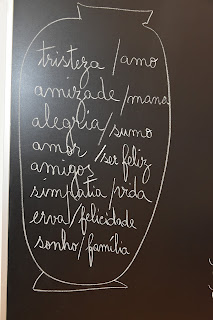 tristeza /amo
amizade /mana
alegria /sumo
amor /ser feliz
amigos
simpatia /vida
erva /felicidade
sonho /família